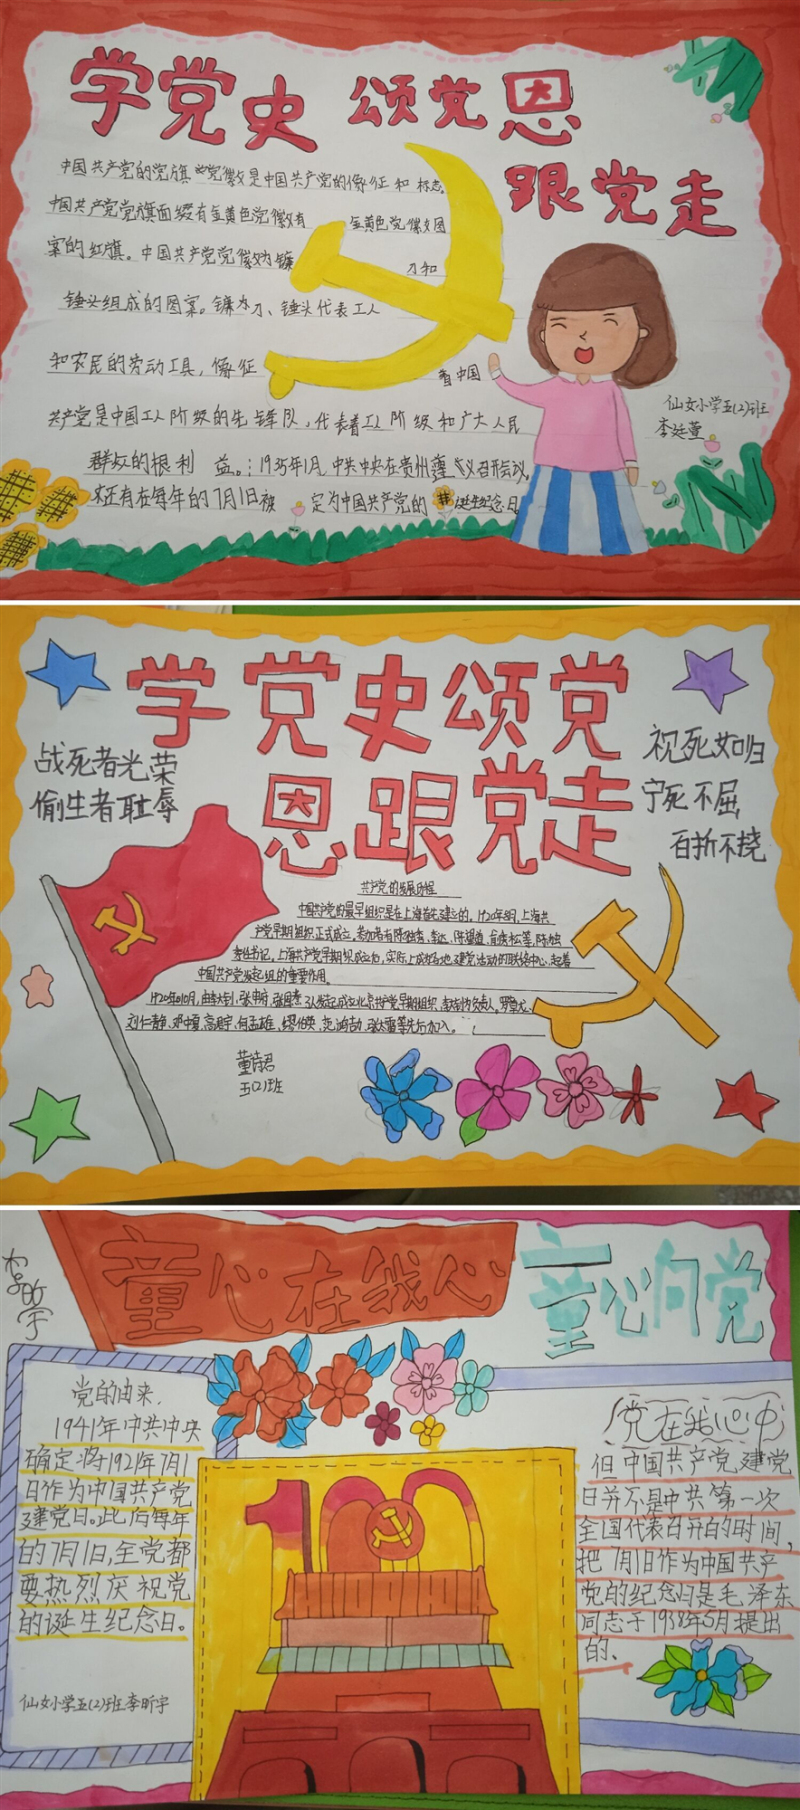 学党史 颂党恩
跟党走
中国共产党的党旗 党徽是中国共产党的像征和标志。
中国共产党党旗面缀有金黄色党徽有 金黄色党徽图
案的红旗。中国共产党党徽为镰 刀和
锤头组成的图案。镰 刀、锤头代表工人
和农民的劳动工具，像征 着中国
共产党是中国工人阶级的先锋队，代表着工人阶级和广大人民
群众的根利 益。：1935年1月,中共中央在贵州遵 义召开会议,
还有在每年的7月1日被 定为中国共产党的 诞生纪念日。
仙女小学五(2)班
李廷萱
学党史颂党
恩跟党走
战死者光荣
偷生者耻辱
视死如归
宁死不屈
百折不挠
共产党的发展历程
中国共产党的最早组织是在上海首先建立的。1920年8月,上海共
产党早期组织正式成立。参加者有陈独秀、李达、陈望道、俞秀松等,陈独
秀任书记。上海共产党早期组织成立后,实际上成为各地建党活动的联络中心,起着
中国共产党发起组的重要作用。
1920年10月,由李大钊、张申府、张国焘3人发起成立北京共产党早期组织,李大钊为负责人。罗章龙、
刘仁静、邓中夏、高君宇、何孟雄、缪伯英、范鸿劼、张太雷等先后加入。
董诗君
五(2)班
李昕宇
童心在我心
童心向党
党的由来.
1941年中共中央
确定将1921年7月1
日作为中国共产党
建党日。此后每年
的7月1日,全党都
要热烈庆祝党
的诞生纪念日。
仙女小学五(2)班李昕宇
100
党在我心中
但中国共产党建党
日并不是中共第一次
全国代表召开的时间,
把7月1日作为中国共产
党的纪念日是毛泽东
同志于1938年5月提出
的、